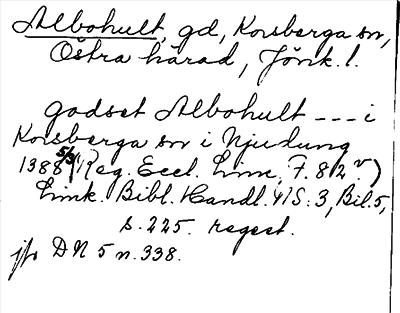 Albohult, gd, Korsberga sn,
Östra härad, Jönk. l.
godset Albohult --- i
Korsberga sn i Njudung
1388 5/3 (Reg. Eccl. Linc, F. 82 v)
Link. Bibl. Handl. 4/S: 3, Bil. 5,
s. 225. regest.
jfr DN 5 n. 338.